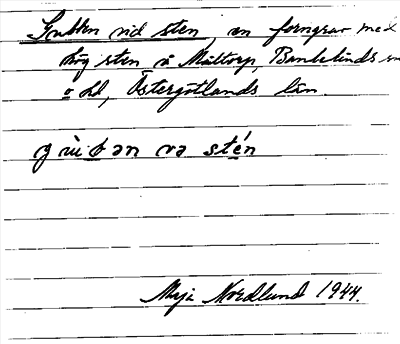 Gubben vid sten, en forngrav med
hög sten å Mältorp, Bankekinds sn
o hd, Östergötlands län.
gùbən və sten
Maja Nordlund 1944.